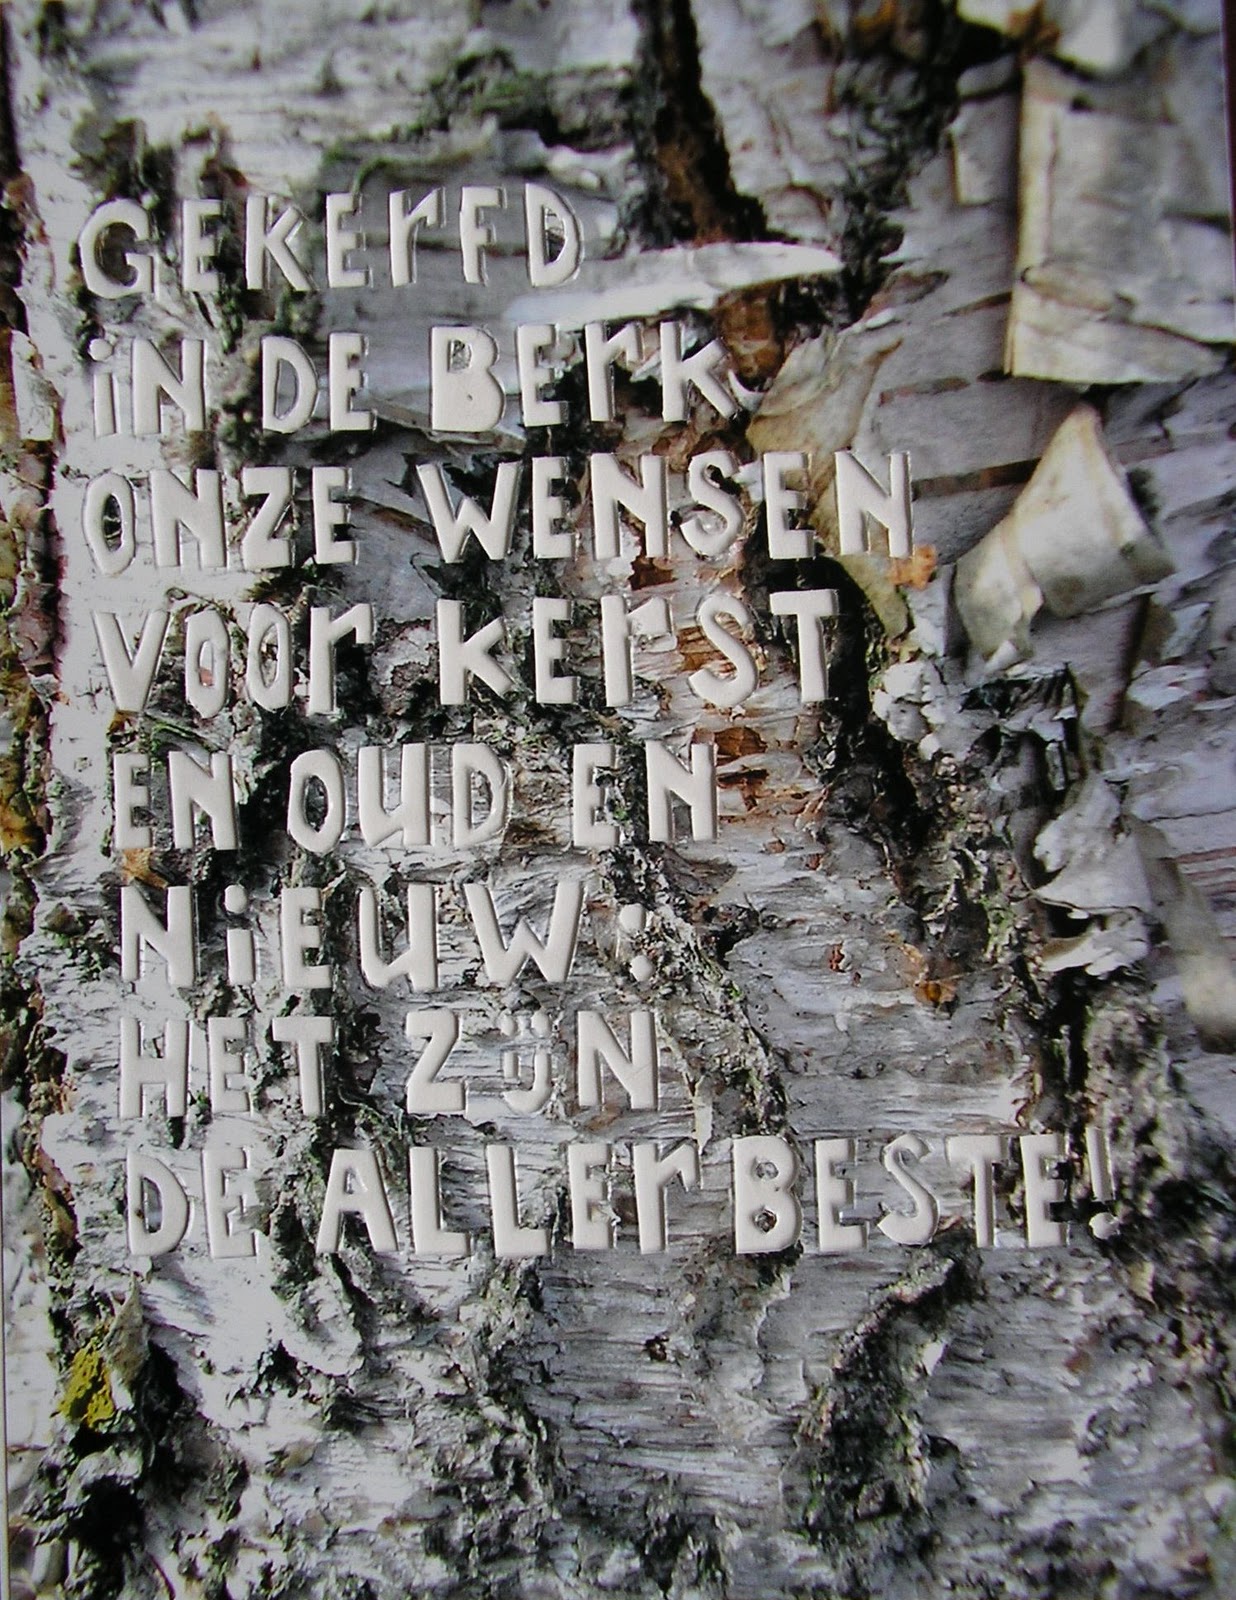 GEKERFD
iN DE BERK
ONZE WENSEN
VOOR KERST
EN OUD EN
NiEUW:
HET ZIJN
DE ALLERBESTE!